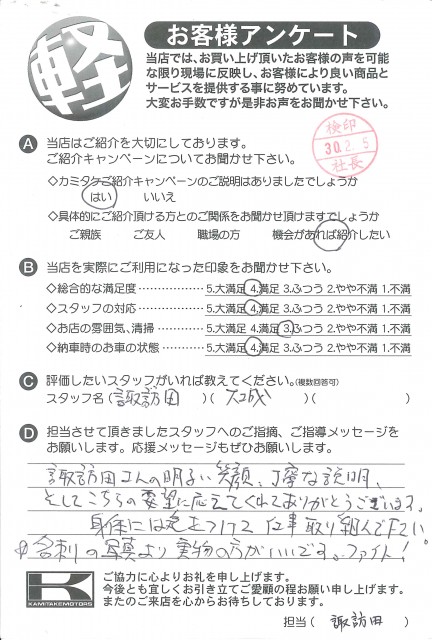 軽
お客様アンケート
当店では、お買い上げ頂いたお客様の声を可能
な限り現場に反映し、お客様により良い商品と
サービスを提供する事に努めています。
大変お手数ですが是非お声をお聞かせ下さい。
検印
30.2.5
社長
A 当店はご紹介を大切にしております。
ご紹介キャンペーンについてお聞かせ下さい。
◇カミタケご紹介キャンペーンのご説明はありましたでしょうか
はい いいえ
◇具体的にご紹介頂ける方とのご関係をお聞かせ頂けますでしょうか
ご親族 ご友人 職場の方 機会があれば紹介したい
B 当店を実際にご利用になった印象をお聞かせ下さい。
◇総合的な満足度……………5.大満足 4.満足 3.ふつう 2.やや不満 1.不満
◇スタッフの対応……………5.大満足 4.満足 3.ふつう 2.やや不満 1.不満
◇お店の雰囲気、清掃………5.大満足 4.満足 3.ふつう 2.やや不満 1.不満
◇納車時のお車の状態………5.大満足 4.満足 3.ふつう 2.やや不満 1.不満
C 評価したいスタッフがいれば教えてください。(複数回答可)
スタッフ名( 諏訪田 )( 大城 )( )
D 担当させて頂きましたスタッフへのご指摘、ご指導メッセージを
お願いします。応援メッセージもぜひお願いします。
諏訪田さんの明るい笑顔、丁寧な説明、
そしてこちらの要望に応えてくれてありがとうございます。
身体には気をつけて仕事取り組んで下さい
名刺の写真より実物の方がいいです。ファイト!
K
KAMITAKEMOTORS
ご協力に心よりお礼を申し上げます。
今後とも宜しくお引き立てご愛顧の程お願い申し上げます。
またのご来店を心からお待ちしております。
担当( 諏訪田 )